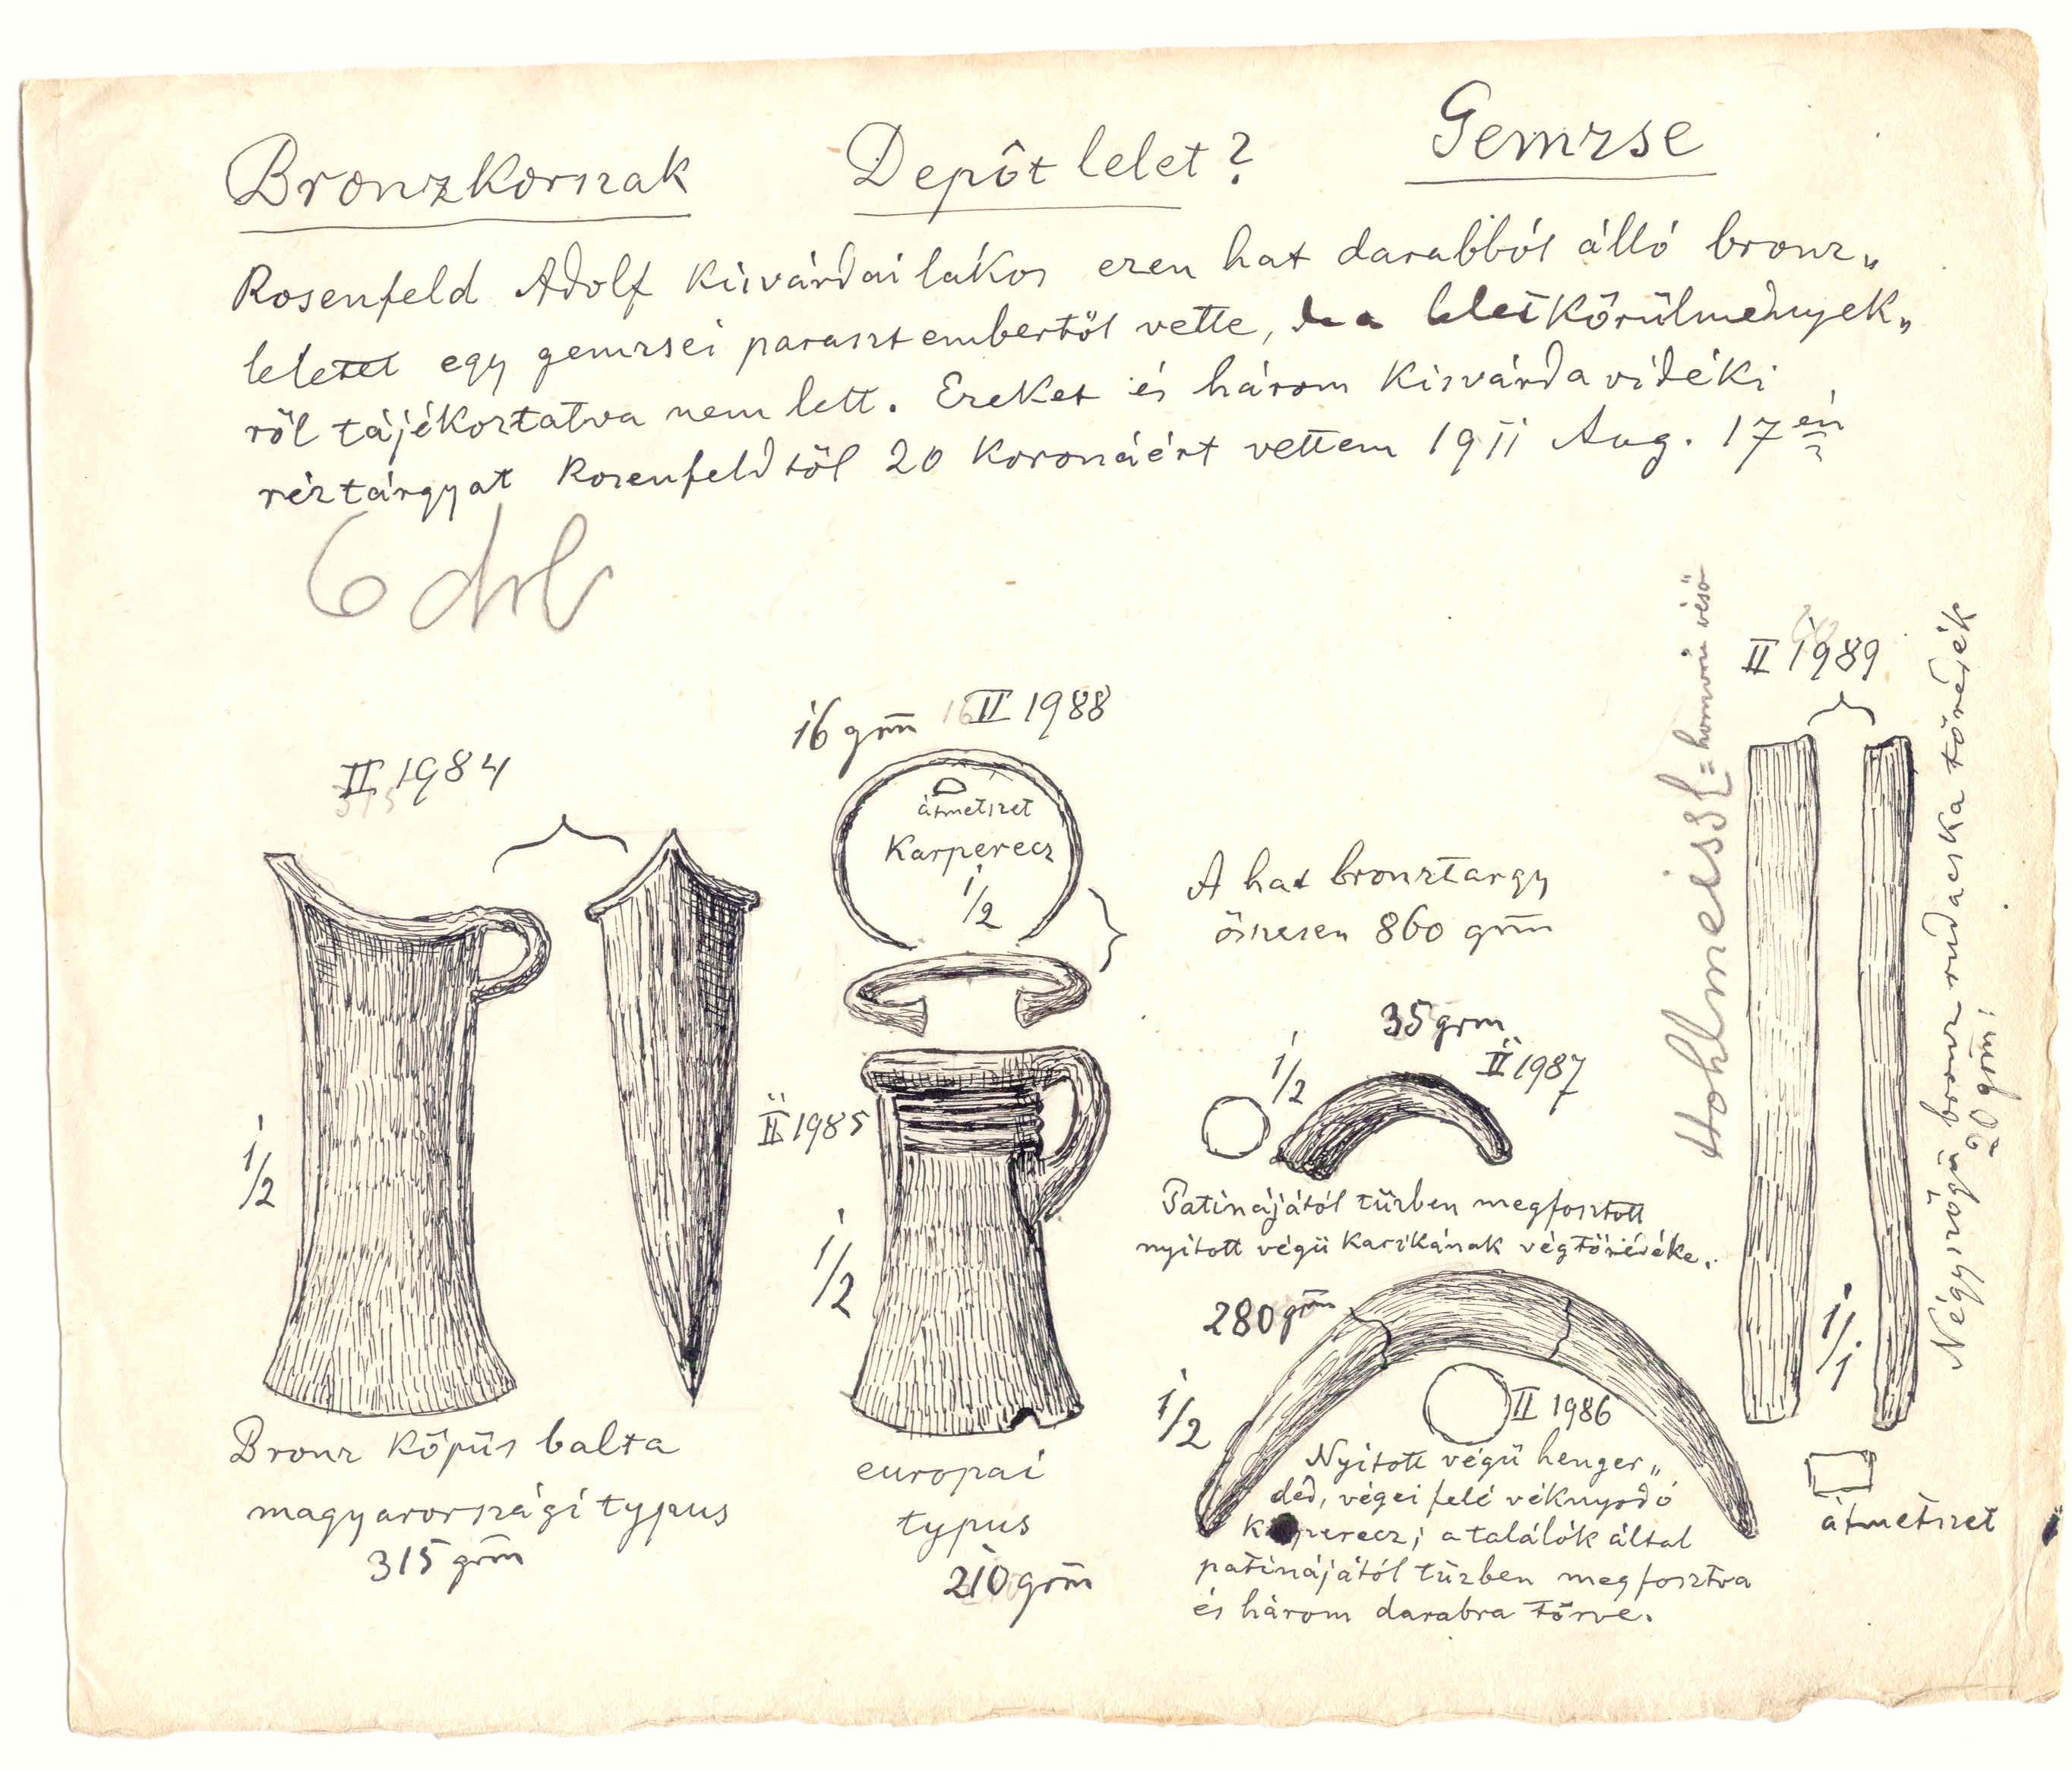 Bronzkorszak
Depôt lelet?
Gemzse
Rosenfeld Adolf Kisvárdai lakos ezen hat darabból álló bronz„
leletet egy gemzsei parasztembertől vette, de a leletkörülmények„
ről tájékoztatva nem lett. Ezeket és három Kisvárda vidéki
réztárgyat Rosenfeldtől 20 koronáért vettem 1911 Aug. 17én
6 drb
II 1984
1/2
Bronz Köpűs balta
magyarországi typus
315 grm
16 grm II 1988
átmetszet
Karperecz
1/2
II 1985
1/2
europai
typus
210 grm
A hat bronztargy
összesen 860 grm
35 grm
1/2
II 1987
Patinájától tűzben megfosztott
nyitott végű karikának végtöredéke.
280 grm
1/2
II 1986
Nyitott végű henger„
ded, végei felé véknyodó
karperecz; a találók által
patinájától tűzben megfosztva
és három darabra törve.
Hohlmeissl = homorú véső
II 1989
1/1
átmetszet
Négyszögű bronz rudacska töredék
20 grm!